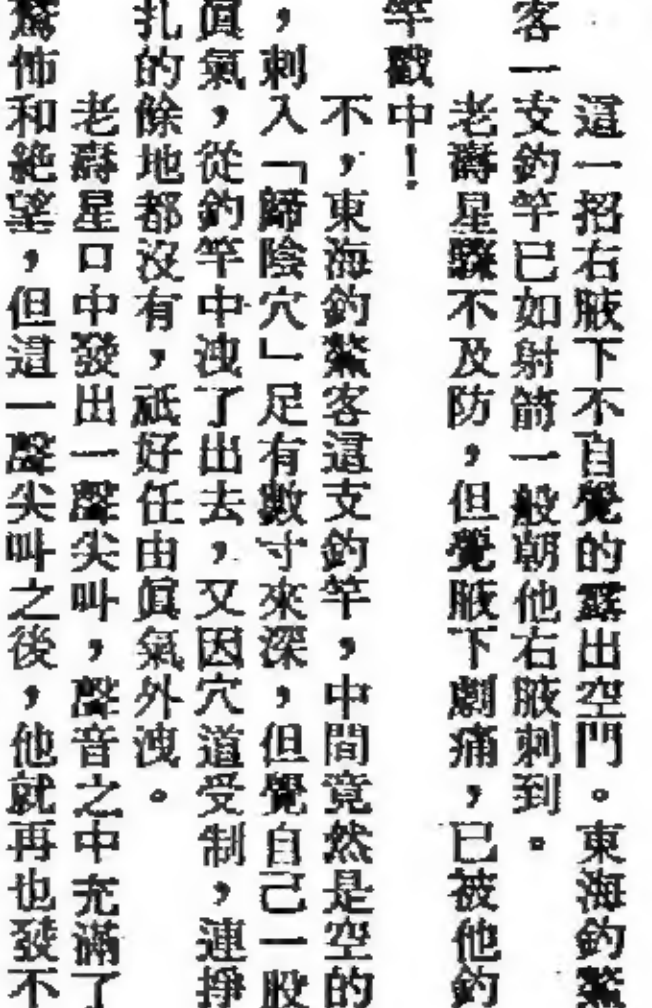 這一招右腋下不自覺的露出空門。東海釣鰲
客一支釣竿已如射箭一般朝他右腋刺到。
老壽星驟不及防，但覺腋下劇痛，已被他釣
竿戳中！
不，東海釣鰲客這支釣竿，中間竟然是空的
，刺入「歸陰穴」足有數寸來深，但覺自己一股
真氣，從釣竿中洩了出去，又因穴道受制，連掙
扎的餘地都沒有，祇好任由真氣外洩。
老壽星口中發出一聲尖叫，聲音之中充滿了
驚怖和絕望，但這一聲尖叫之後，他就再也發不